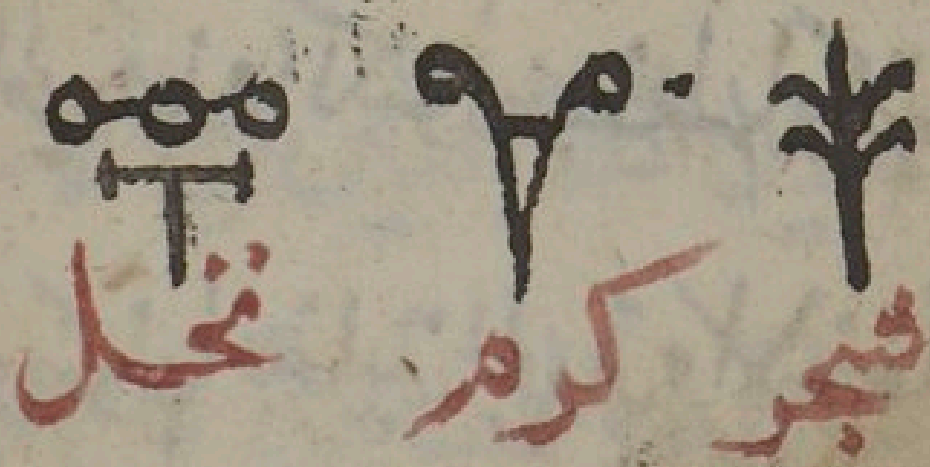 شجر كرم نخل